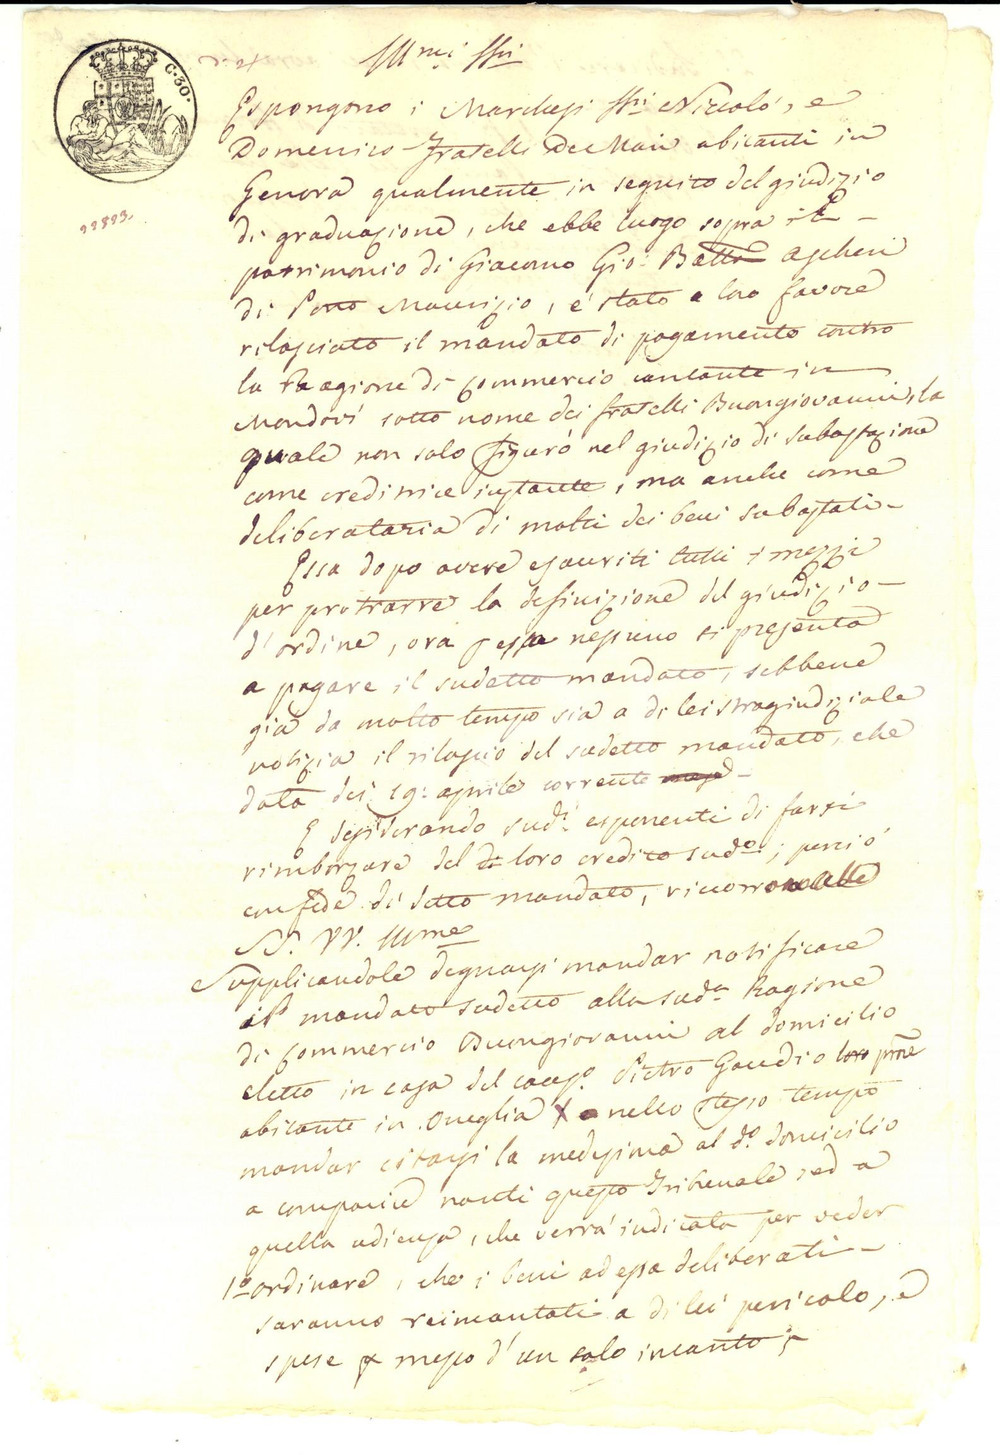 C. 30.
Ill.mi SSri
22823.
Espongono i Marchesi SSri Niccolò, e
Domenico Fratelli De Mari abitanti in
Genova qualmente in seguito del giudizio
di graduazione, che ebbe luogo sopra il
patrimonio di Giacomo Gio: Batta Ascheri
di Porto Maurizio, è stato a loro favore
rilasciato il mandato di pagamento contro
la Ragione di Commercio cantante in
Mondovì sotto nome dei fratelli Buongiovanni, la
quale non solo figurò nel giudizio di subastazione
come creditrice instante, ma anche come
deliberataria di molti dei beni subastati.
Essa dopo avere esauriti tutti i mezzi
per protrarre la definizione del giudizio
d'ordine, ora per essa nessuno si presenta
a pagare il sudetto mandato, sebbene
già da molto tempo sia a di lei stragiudiziale
notizia il rilascio del sudetto mandato, che
data dei 19. aprile corrente
E desiderando sud.i esponenti di farsi
rimborzare del loro credito sud.o; perciò
con fede di detto mandato, ricorrono alle
SS. VV. Ill.me
Supplicandole degnarsi mandar notificare
il mandato sudetto alla sud.a Ragione
di Commercio Buongiovanni al domicilio
eletto in casa del caus.o Pietro Gaudio loro proc.re
abitante in Oneglia e nello stesso tempo
mandar citarsi la medesima al d.o domicilio
a comparire nanti questo Tribunale, ed a
quella udienza, che verrà indicata per veder
1.o ordinare, che i beni ad essa deliberati
saranno reincantati a di lei pericolo, e
spese per mezzo d'un solo incanto;